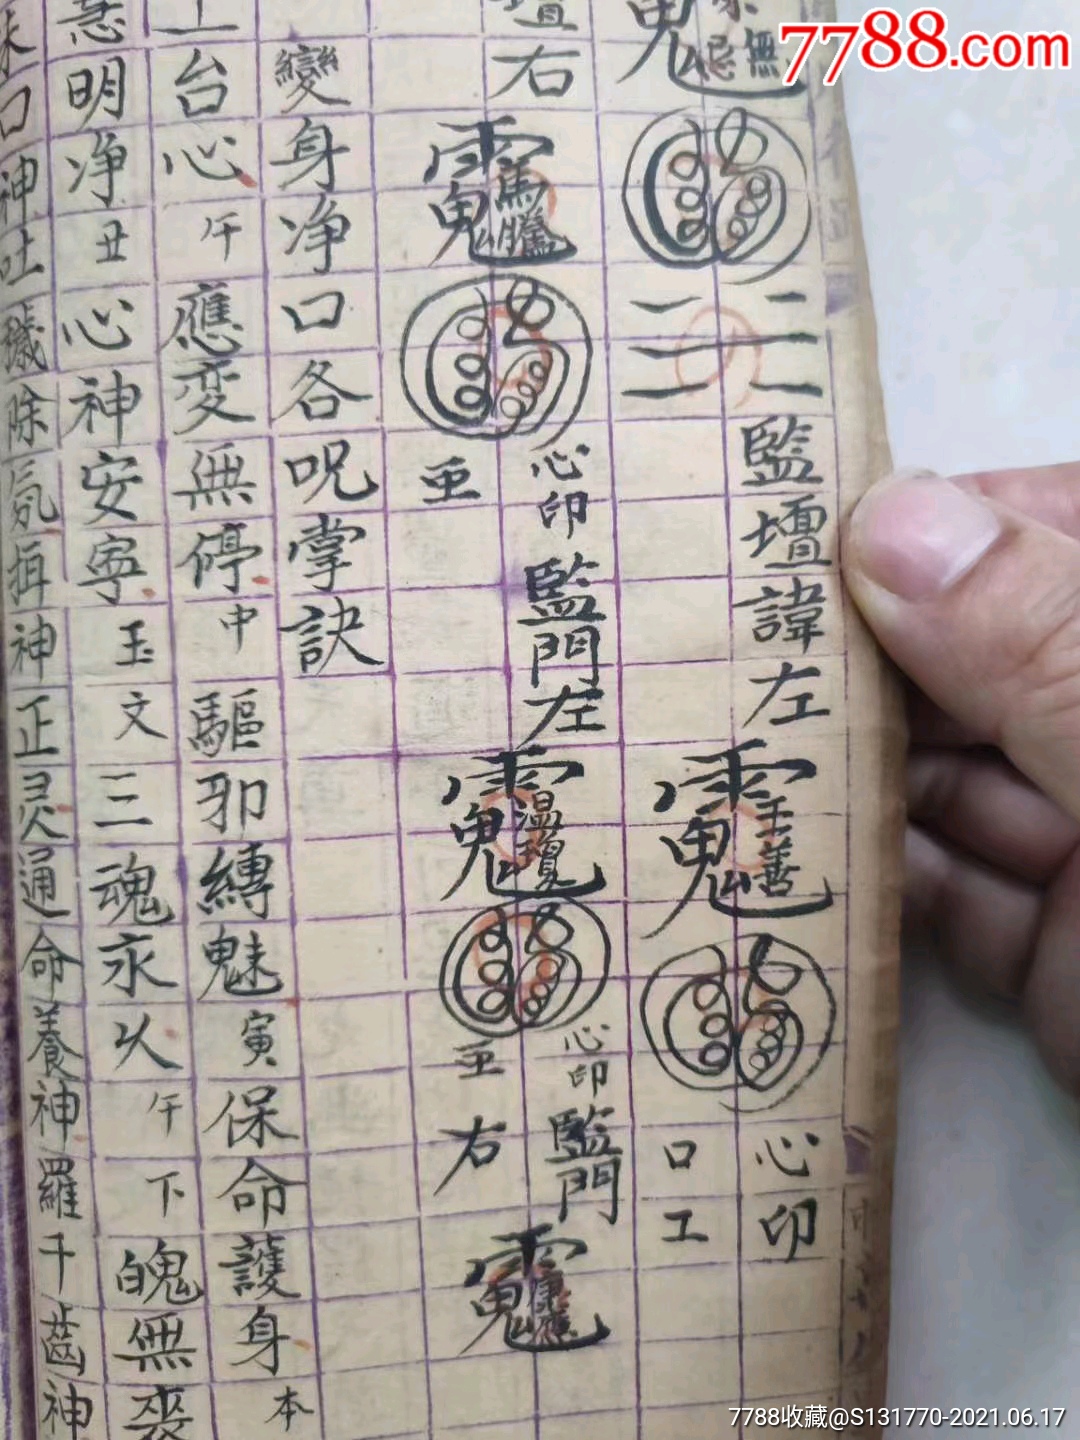 7788.com
無忌
二一 監壇諱左
王善
心印
二一
口工
壇右
心印 監門左
溫瓊
心印 監門
馬勝
王
王
右
康應
變身淨口各呪掌訣
上台心 午 應变無停 中 驅邪縛魅 寅 保命護身 本
急明淨 丑 心神安寧 玉文 三魂永久 午下 魄無丧
朱口神吐穢除氛 神正灵通命養神羅千齒神
7788收藏@S131770-2021.06.17